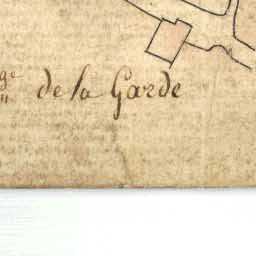 ge de la Garde